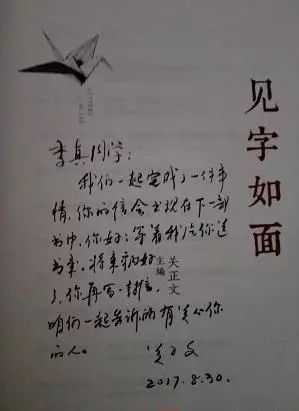 见字如面
主编
关正文
李真同学：
我们一起完成了一件事
情，你的信会出现在下一部
书中，你好好等着我给你送
书来。将来病好
了，你再写一封信，
咱们一起告诉所有关心你
的人。
关正文
2017.8.30.